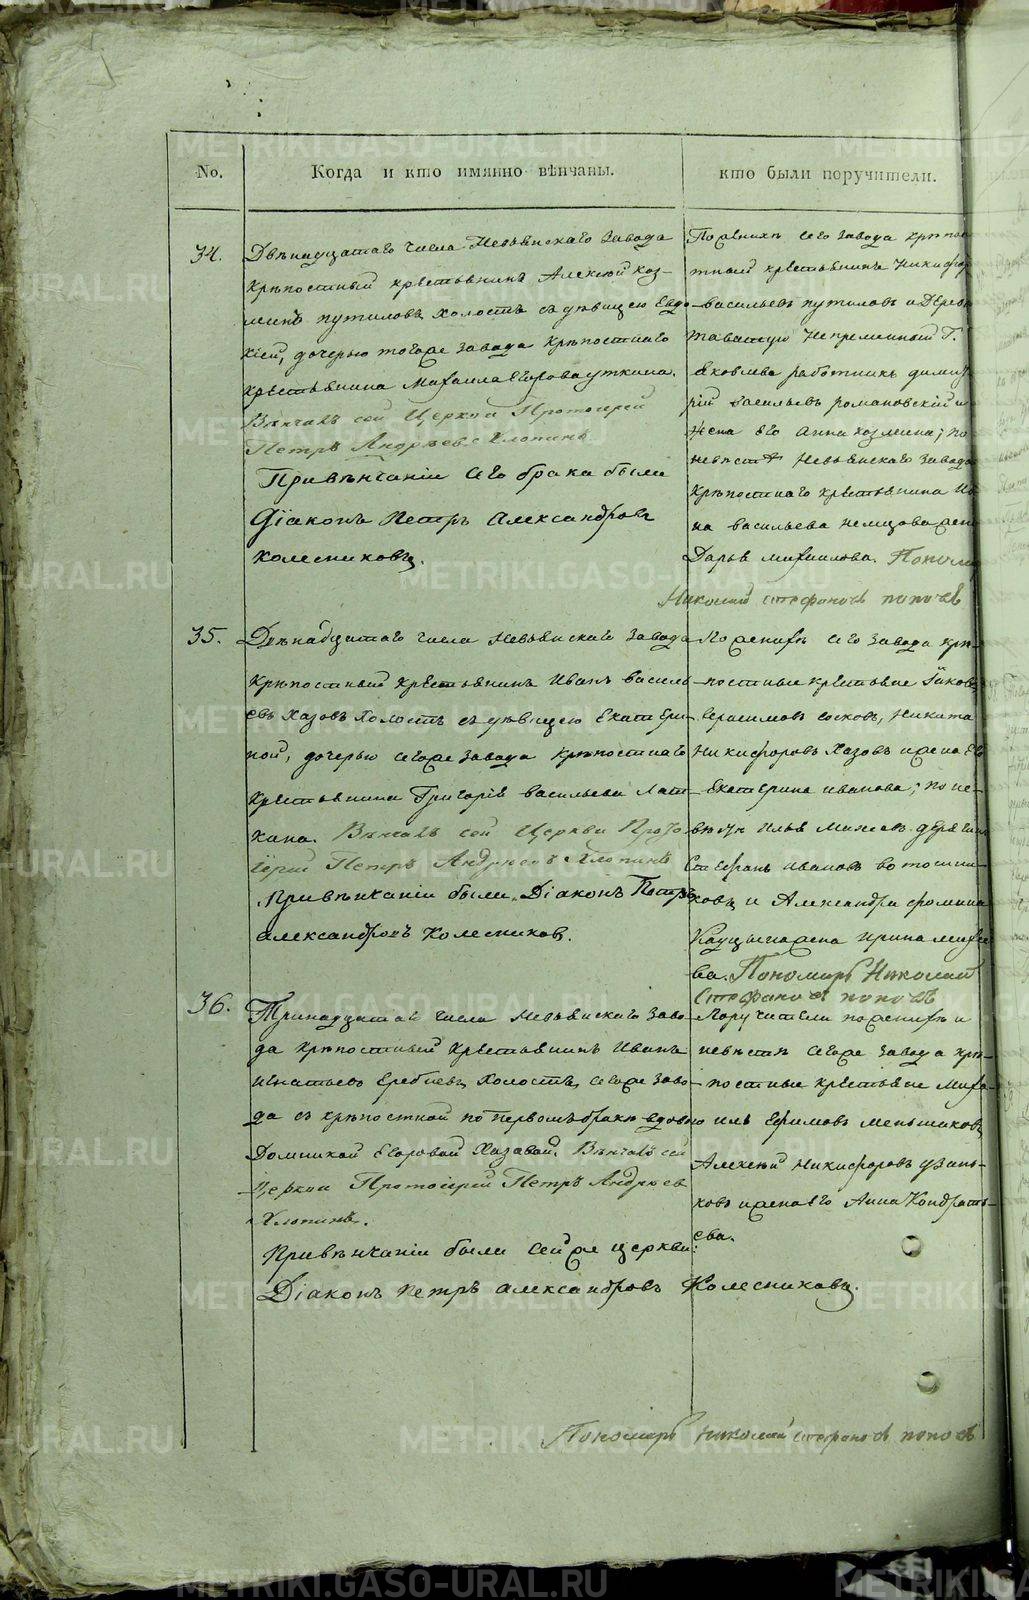 No.
Когда и кто имянно вѣнчаны.
кто были поручители.
34.
Двѣнадцатаго числа Невьянскаго завода
крѣпостный крестьянинъ Алексѣй коз-
минъ путиловъ холостъ съ дѣвицею Евдо
кіей, дочерью тогоже завода крѣпостнаго
крестьянина Михаила Егорова уткина.
Вѣнчалъ сей Церкви Протоіерей
Петръ Андрѣевъ Хлопинъ
Привѣнчаніи сего брака были
Діаконъ Петръ Александровъ
колесниковъ.
Поженихѣ сего завода крѣпос
тный крестьянинъ Никифор
васильевъ путиловъ и Дерев
непременный Г.
Яковлева работникъ дмит
рій васильевъ романовскій и
жена его Анна козмина; по
невѣстѣ Невьянскаго завода
крѣпостнаго крестьянина Ив
на васильева немцова жен
Дарья михаилова. Поном
Николай стефановъ поповъ
35.
Двѣнадцатаго числа невьянскаго завода
крѣпостный крестьянинъ Иванъ василь
евъ Хазовъ холостъ съ дѣвицею Екатери
ной, дочерью сегоже завода крѣпостнаго
крестьянина Григорія васильева Лат
кина. Вѣнчалъ сей Церкви Прото
іерей Петръ Андрѣевъ Хлопинъ
Привѣнчаніи были Діаконъ Петръ
александровъ Колесников.
Поженихѣ сего завода крѣ-
постные крестьяне Іаковъ
Герасимовъ сосковъ, Никита
Никифоровъ Хазовъ и жена его
Екатерина иванова; по не-
Илья
Стефанъ ивановъ
и Александра фомина
жена ирина
ва. Пономарь Николай
Стефановъ поповъ
36.
Тринадцатаго числа Невьянскаго заво
да крѣпостный крестьянинъ Иванъ
игнатьевъ холостъ, сегоже заво
да съ крѣпостной по первомъ бракѣ вдовою
Домникой Егоровой Хазавой. Вѣнчалъ сей
Церкви Протоіерей Петръ Андрѣевъ
Хлопинъ.
Привѣнчаніи были сейже церкви:
Діаконъ Петръ александровъ Колесниковъ.
Поручители поженихѣ и
невѣстѣ сегоже завода крѣ-
постные крестьяне Миха-
илъ Ефимовъ меньшиковъ,
Алексѣй никифоровъ
ковъ и жена его Анна Кондрать-
ева.
Пономарь Николай стефановъ поповъ
METRIKI.GASO-URAL.RU